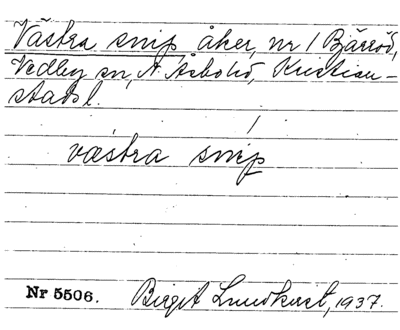 Västra snip, åker, nr 1 Bäréöd,
Vedby sn, N. Åsbo hd, Kristian-
stads l.
västra snip
Nr 5506. Birgit Lundkvist, 1937.